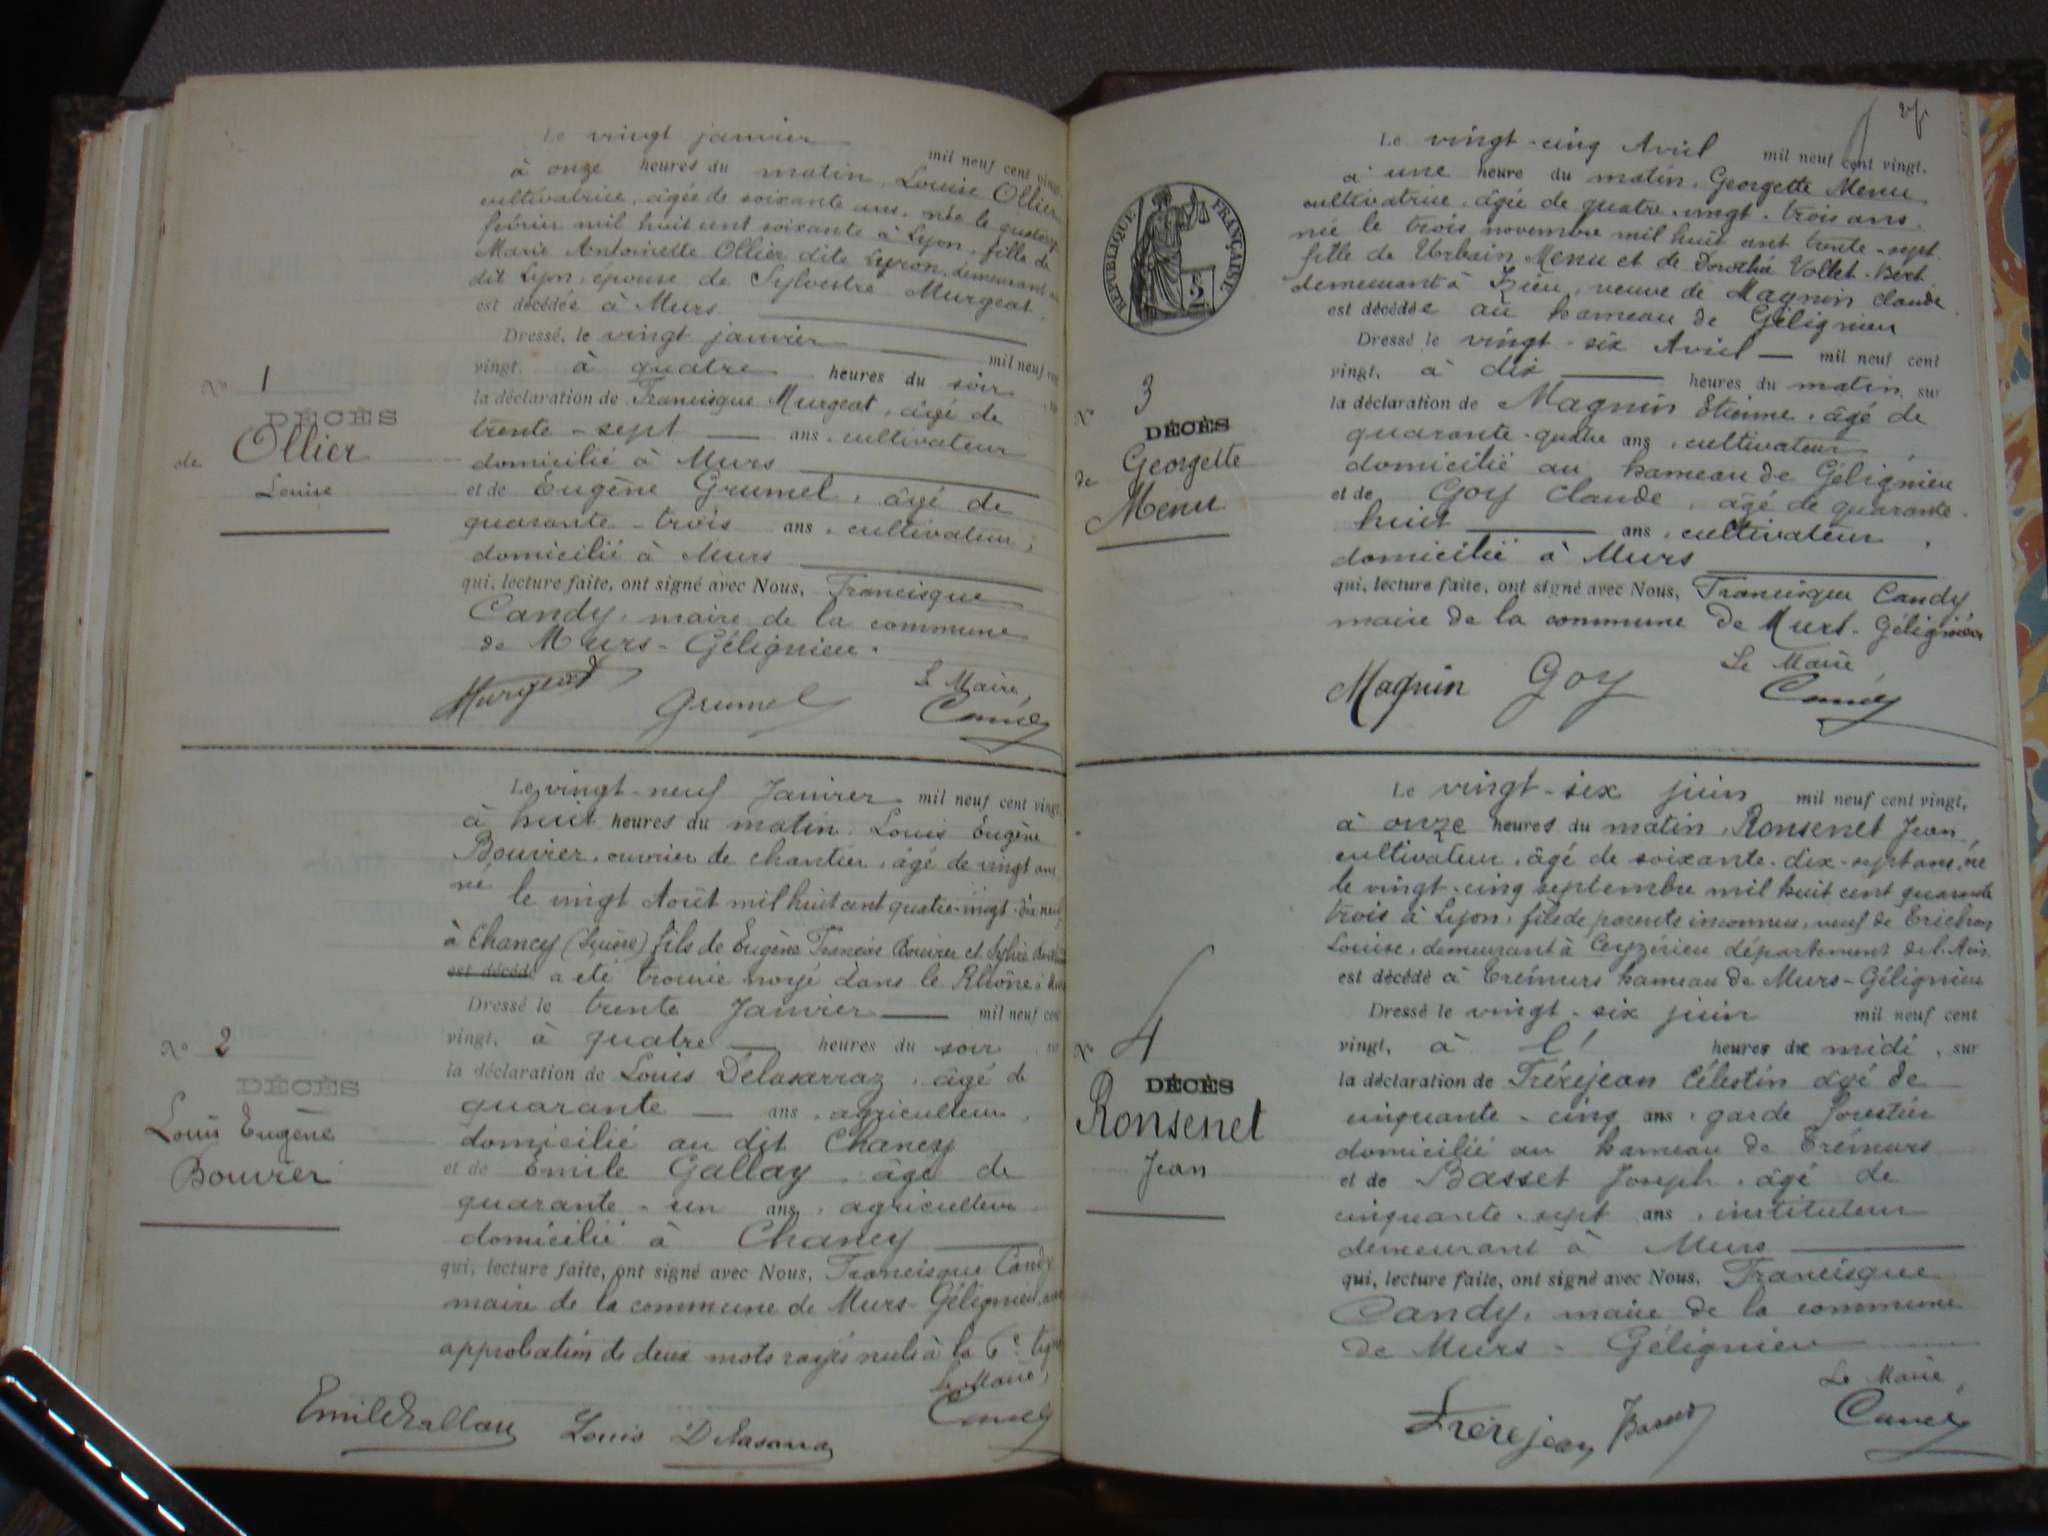 Le vingt janvier mil neuf cent vingt,
à onze heures du matin, Louise Ollier
cultivatrice, âgée de soixante ans, née le quatorze
février mil huit cent soixante à Lyon, fille de
Marie Antoinette Ollier dite Leyron, demeurant
dit Lyon, épouse de Sylvestre Murgeat,
est décédée à Murs
Dressé, le vingt janvier mil neuf cent
vingt, à quatre heures du soir, sur
la déclaration de Francisque Murgeat, âgé de
trente-sept ans, cultivateur
domicilié à Murs
et de Eugène Grumel, âgé de
quarante-trois ans, cultivateur,
domicilié à Murs
qui, lecture faite, ont signé avec Nous, Francisque
Candy, maire de la commune
de Murs-Gélignieu.
Le Maire,
Murgeat Grumel Candy
N° 1
DÉCÈS
de Ollier
Louise
Le vingt-neuf Janvier mil neuf cent vingt,
à huit heures du matin, Louis Eugène
Bouvier, ouvrier de chantier, âgé de vingt ans
né le vingt Août mil huit cent quatre-vingt-dix neuf
à Chancy (Suisse) fils de Eugène François Bouvier et Sylvie
est décédé a été trouvé noyé dans le Rhône à Murs
Dressé le trente Janvier mil neuf cent
vingt, à quatre heures du soir, sur
la déclaration de Louis Délasarraz, âgé de
quarante ans, agriculteur,
domicilié au dit Chancy
et de Emile Gallay, âgé de
quarante-un ans, agriculteur
domicilié à Chancy
qui, lecture faite, ont signé avec Nous, Francisque Candy
maire de la commune de Murs-Gélignieu, avec
approbation de deux mots rayés nuls à la 6e ligne
Le Maire,
Emile Gallay Louis Delasarraz Candy
N° 2
DÉCÈS
Louis Eugène
Bouvier
Le vingt-cinq Avril mil neuf cent vingt,
à une heure du matin, Georgette Menu
cultivatrice, âgée de quatre-vingt-trois ans,
née le trois novembre mil huit cent trente-sept
fille de Urbain Menu et de Dorothé Vollet-Bert
demeurant à Izieu, veuve de Magnin Claude
est décédée au hameau de Gélignieu
Dressé le vingt-six Avril mil neuf cent
vingt, à dix heures du matin, sur
la déclaration de Magnin Etienne, âgé de
quarante-quatre ans, cultivateur,
domicilié au hameau de Gélignieu
et de Goy Claude, âgé de quarante-
huit ans, cultivateur,
domicilié à Murs
qui, lecture faite, ont signé avec Nous, Francisque Candy
maire de la commune de Murs-Gélignieu
Le Maire,
Magnin Goy Candy
RÉPUBLIQUE FRANÇAISE
N° 3
DÉCÈS
de Georgette
Menu
Le vingt-six juin mil neuf cent vingt,
à onze heures du matin, Ronsenet Jean,
cultivateur, âgé de soixante-dix-sept ans, né
le vingt-cinq septembre mil huit cent quarante
trois à Lyon, fils de parents inconnus, veuf de Erichon
Louise, demeurant à Ceyzérieu département de l'Ain
est décédé à Trémurs hameau de Murs-Gélignieu
Dressé le vingt-six juin mil neuf cent
vingt, à l' heures de midi, sur
la déclaration de Frérejean Célestin âgé de
cinquante-cinq ans, garde forestier
domicilié au hameau de Trémurs
et de Basset Joseph, âgé de
cinquante-sept ans, instituteur
demeurant à Murs
qui, lecture faite, ont signé avec Nous, Francisque
Candy, maire de la commune
de Murs-Gélignieu
Le Maire,
Frérejean Basset Candy
N° 4
DÉCÈS
Ronsenet
Jean